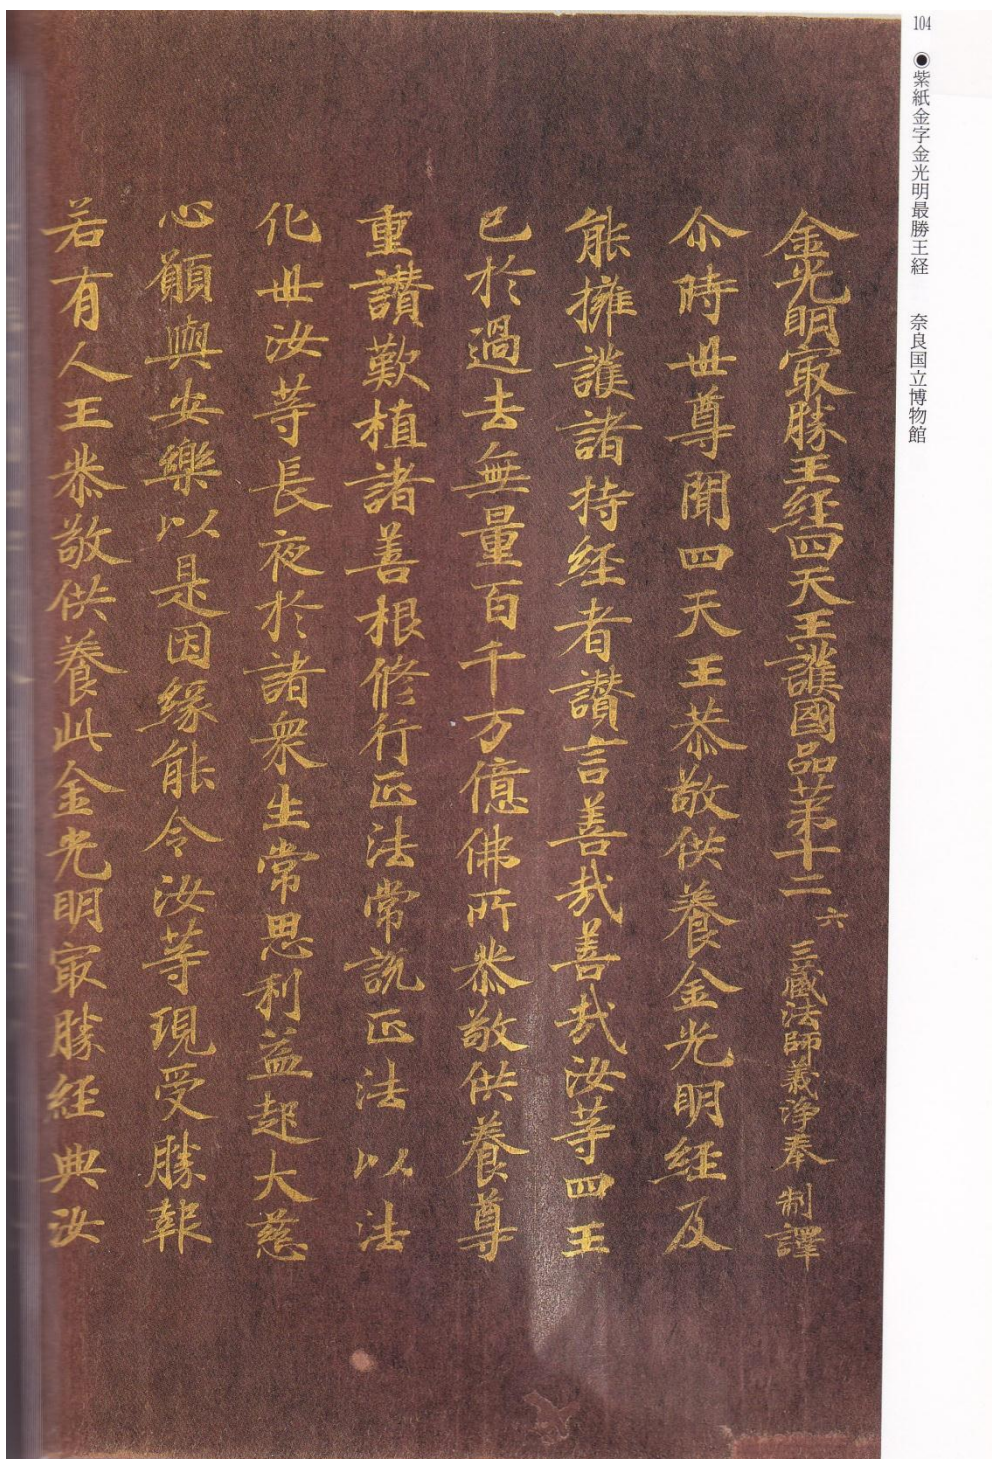 104 ◉紫紙金字金光明最勝王経 奈良国立博物館
金光明冣勝王経四天王護國品苐十二 六 三蔵法師義淨奉 制譯
尒時世尊聞四天王恭敬供養金光明経及
能擁護諸持経者讃言善哉善哉汝等四王
已於過去無量百千万億佛所恭敬供養尊
重讃歎植諸善根修行正法常説正法以法
化世汝等長夜於諸衆生常思利益起大慈
心願與安樂以是因緣能令汝等現受勝報
若有人王恭敬供養此金光明冣勝経典汝